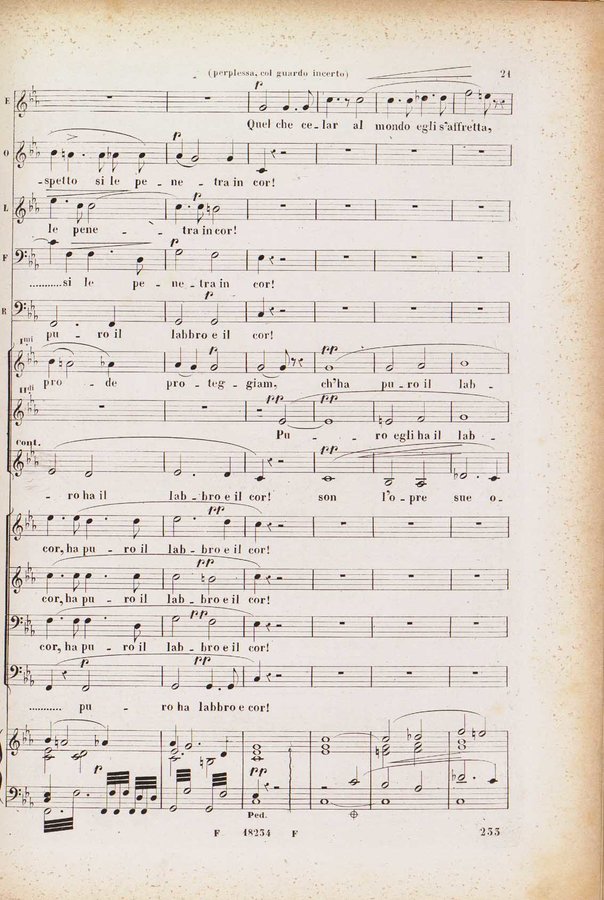 (perplessa, col guardo incerto) 21
E
p
Quel che ce-lar al mondo egli s'affretta,
O
p
-spetto si le pe - ne - tra in cor!
L
p
le pene - - tra in cor!
F
p
............si le pe - ne - tra in cor!
R
p
pu - ro il labbro e il cor!
pp
pro - de pro - teg - giam, ch'ha pu - ro il lab -
pp
Pu - - ro egli ha il lab -
cont.
pp
- ro ha il lab - bro e il cor! son l'o - pre sue o -
pp
cor, ha pu - ro il lab - bro e il cor!
pp
cor, ha pu - ro il lab - bro e il cor!
pp
cor, ha pu - ro il lab - bro e il cor!
p pp
........... pu - ro ha labbro e cor!
p pp
Ped.
F 48234 F 233